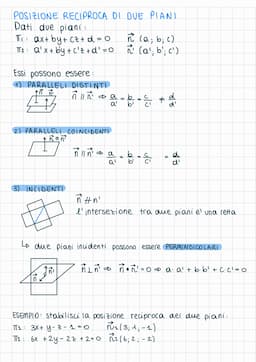 POSIZIONE RECIPROCA DI DUE PIANI
Dati due piani:
π₁: ax+by+cz+d=0 n⃗ (a; b; c)
π₂: a'x+b'y+c'z+d'=0 n⃗' (a'; b'; c')
Essi possono essere:
1) PARALLELI DISTINTI
n⃗ // n⃗' ⇒ a/a' = b/b' = c/c' ≠ d/d'
2) PARALLELI COINCIDENTI
n⃗ // n⃗' ⇒ a/a' = b/b' = c/c' = d/d'
3) INCIDENTI
n⃗ ∦ n⃗'
l'intersezione tra due piani e' una retta
↳ due piani incidenti possono essere PERPENDICOLARI
n⃗ ⊥ n⃗' ⇒ n⃗ • n⃗' = 0 ⇒ a·a' + b·b' + c·c' = 0
ESEMPIO: stabilisci la posizione reciproca dei due piani:
π₁: 3x+y-z-1=0 n⃗₁ (3; 1; -1)
π₂: 6x+2y-2z+2=0 n⃗₂ (6; 2; -2)